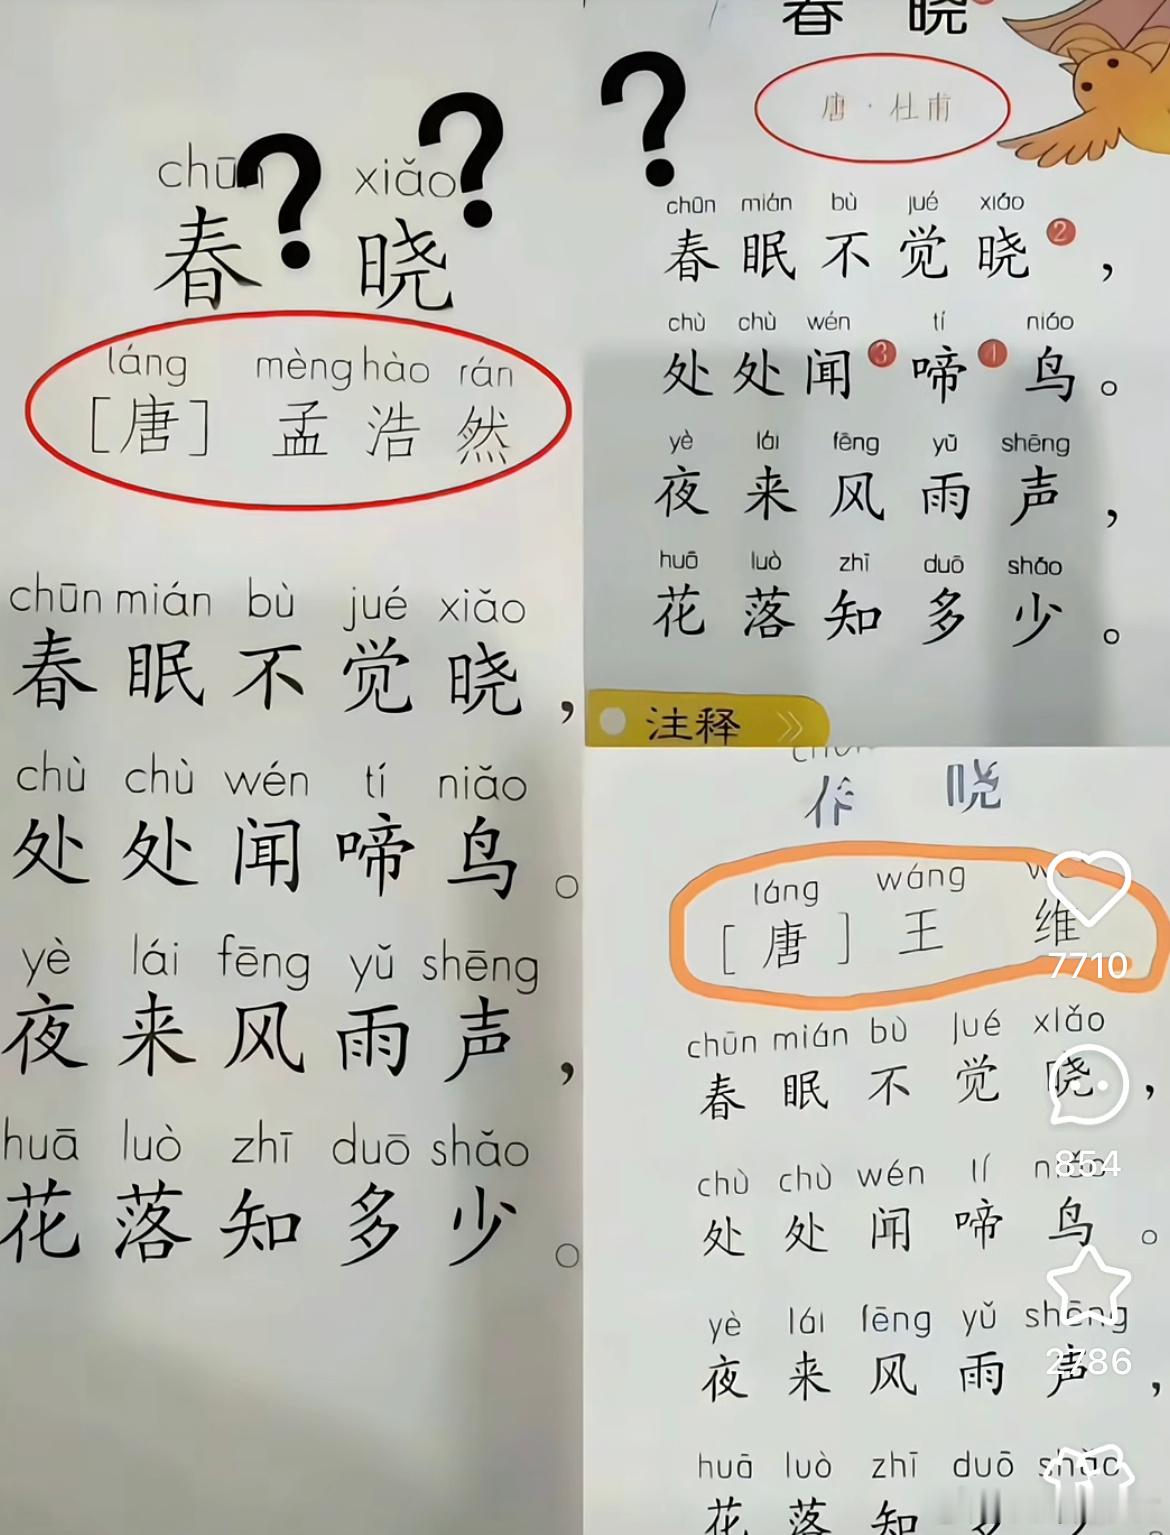 chūn xiǎo
春 晓
láng mèng hào rán
[唐] 孟浩然
chūn mián bù jué xiǎo
春眠不觉晓，
chù chù wén tí niǎo
处处闻啼鸟。
yè lái fēng yǔ shēng
夜来风雨声，
huā luò zhī duō shǎo
花落知多少。
? ?
春 晓
?
唐·杜甫
chūn mián bù jué xiǎo
春眠不觉晓②，
chù chù wén tí niǎo
处处闻③啼④鸟。
yè lái fēng yǔ shēng
夜来风雨声，
huā luò zhī duō shǎo
花落知多少。
注释
晓
láng wáng
[唐] 王 维
chūn mián bù jué xiǎo
春眠不觉晓，
chù chù wén tí niǎo
处处闻啼鸟。
yè lái fēng yǔ shēng
夜来风雨声，
huā luò zhī duō shǎo
花落知多
7710
854
2786